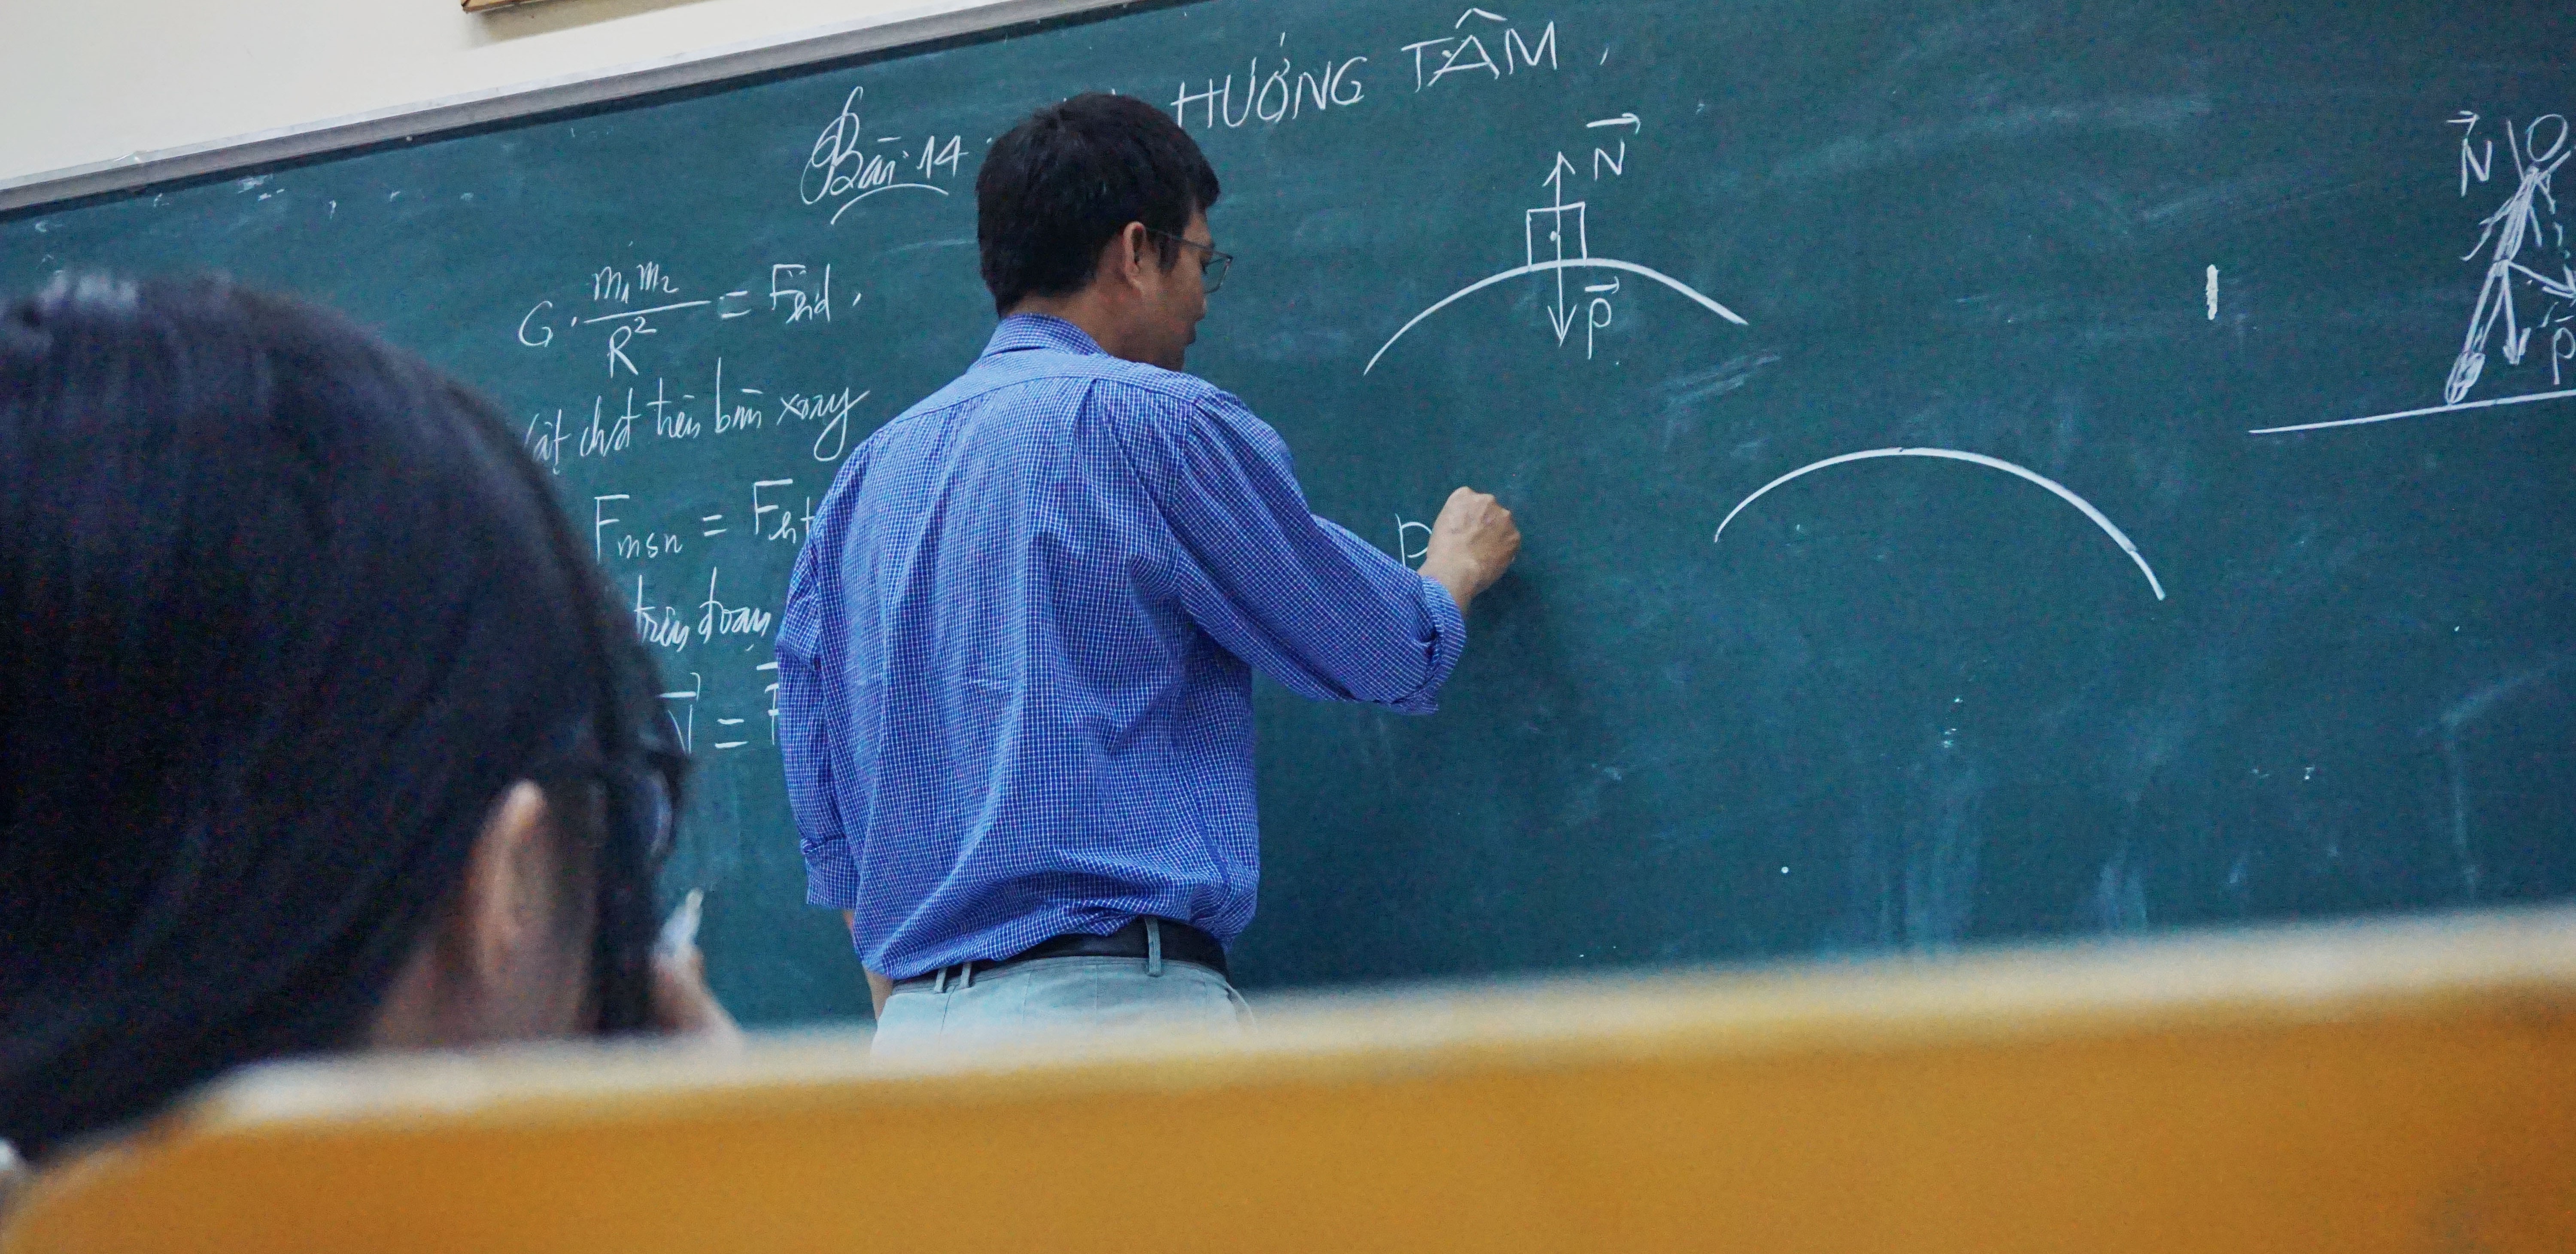 Bài 14: HƯỚNG TÂM
G. m₁m₂/R² = Fhd.
vật đặt trên bàn xoay
Fmsn = Fht
trên đoạn
N⃗ =
N⃗
P⃗
P
N⃗
P⃗